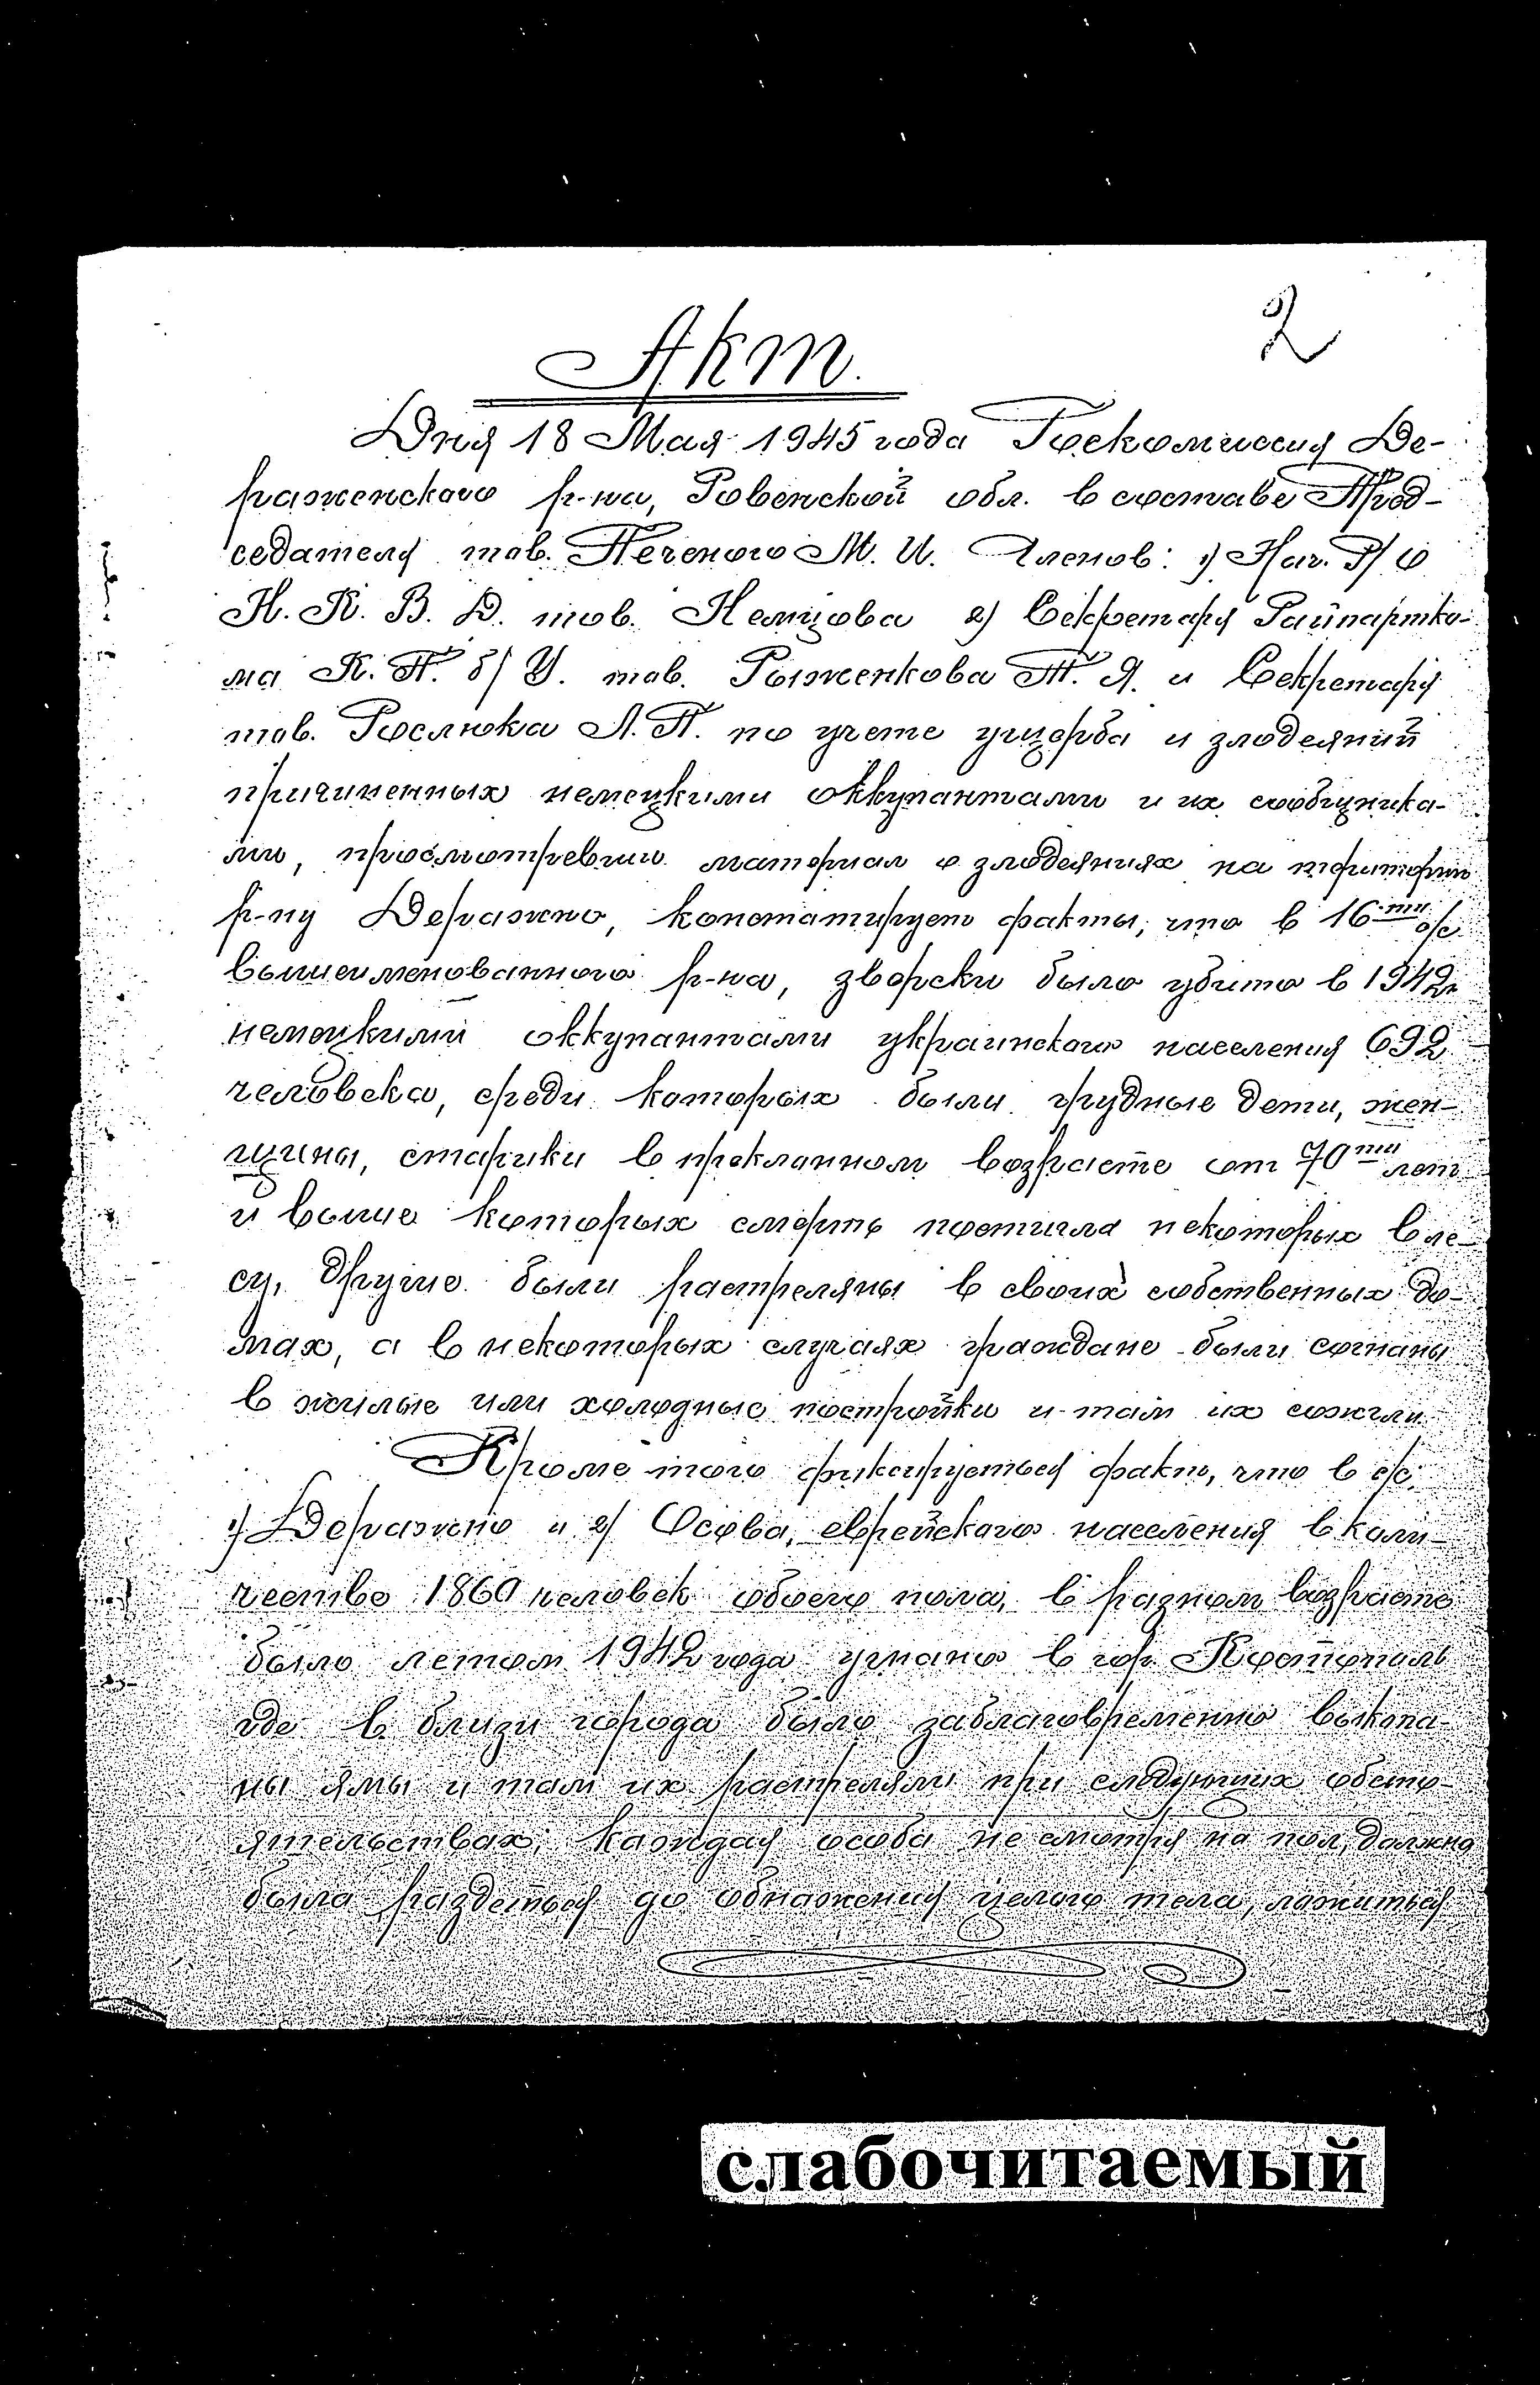 2
Акт.
Дня 18 Мая 1945 года Госкомиссия Де-
раженского р-на, Ровенской обл. в составе Пред-
седателя тов. Печеного М. И. Членов: 1) Нач. Р/О
Н. К. В. Д. тов. Немцова 2) Секретаря Райпартко-
ма К. П. б/ У. тов. Рыженкова Т. Я. и Секретаря
тов. Рослюка Л. П. по учете ущерба и злодеяний
причиненных немецкими оккупантами и их сообщника-
ми, просмотревши материал о злодеяниях на територии
р-ну Деражно, констатирует факты, что в 16-ти с/с
вышеименованного р-на, зверски было убито в 1942г
немецкими оккупантами украинского населения 692
человека, среди которых были грудные дети, жен-
щины, старики в преклонном возрасте от 70-ти лет
и выше которых смерть постигла некоторых в ле-
су, другие были растреляны в своих собственных до-
мах, а в некоторых случаях граждане были согнаны
в жилые или холодные постройки и там их сожгли
Кроме того фиксируеться факт, что в с/с.
1) Деражно и 2) Осова, еврейского населения в коли-
честве 1860 человек обоего пола, в разном возрасте
было летом 1942 года угнано в гор. Костополь
где в близи города было заблаговременно выкопа-
ны ямы и там их растреляли при следующих обсто-
ятельствах; каждая особа не смотря на пол, должна
была раздеться до обнажения целого тела, ложиться
слабочитаемый